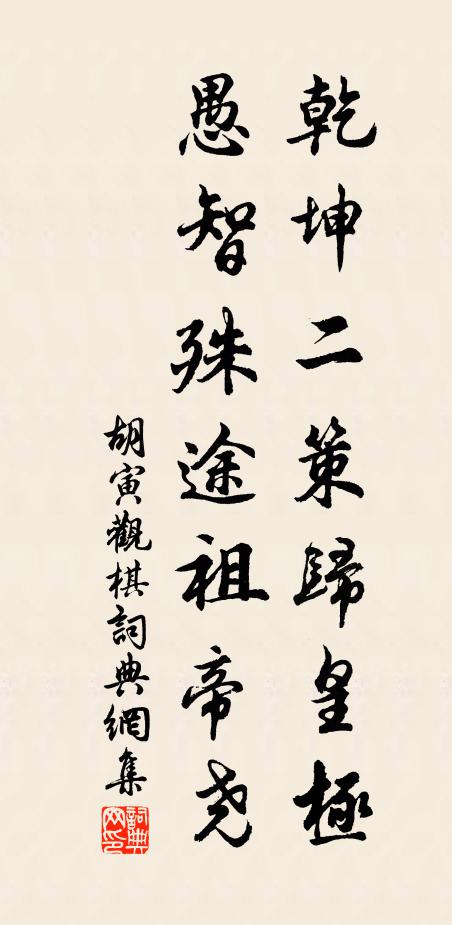 乾坤二策歸皇極
愚智殊途祖帝尧
胡寅觀棋詞典網集
詞典网印